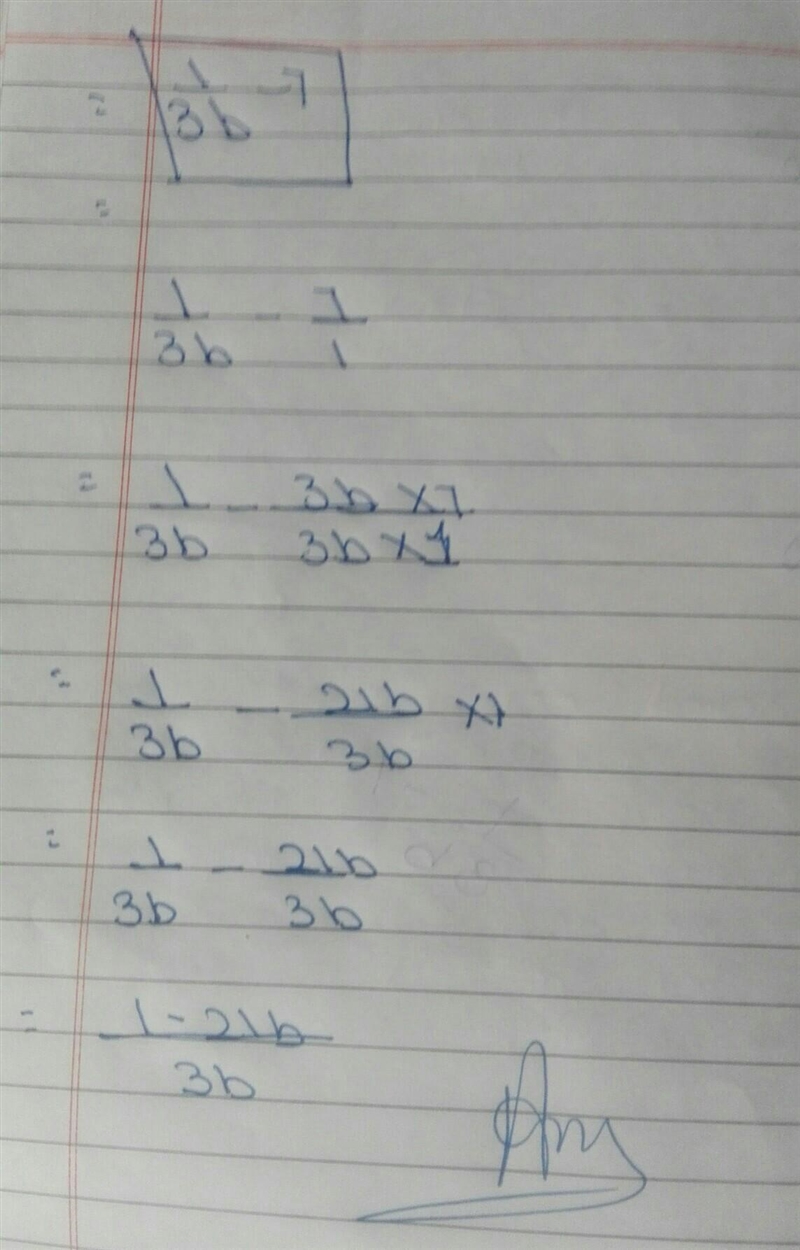 = 1/3b - 7
=
1/3b - 7/1
= 1/3b - 3b × 7/3b × 1
= 1/3b - 21b/3b × 1
= 1/3b - 21b/3b
= 1 - 21b/3b
Ans